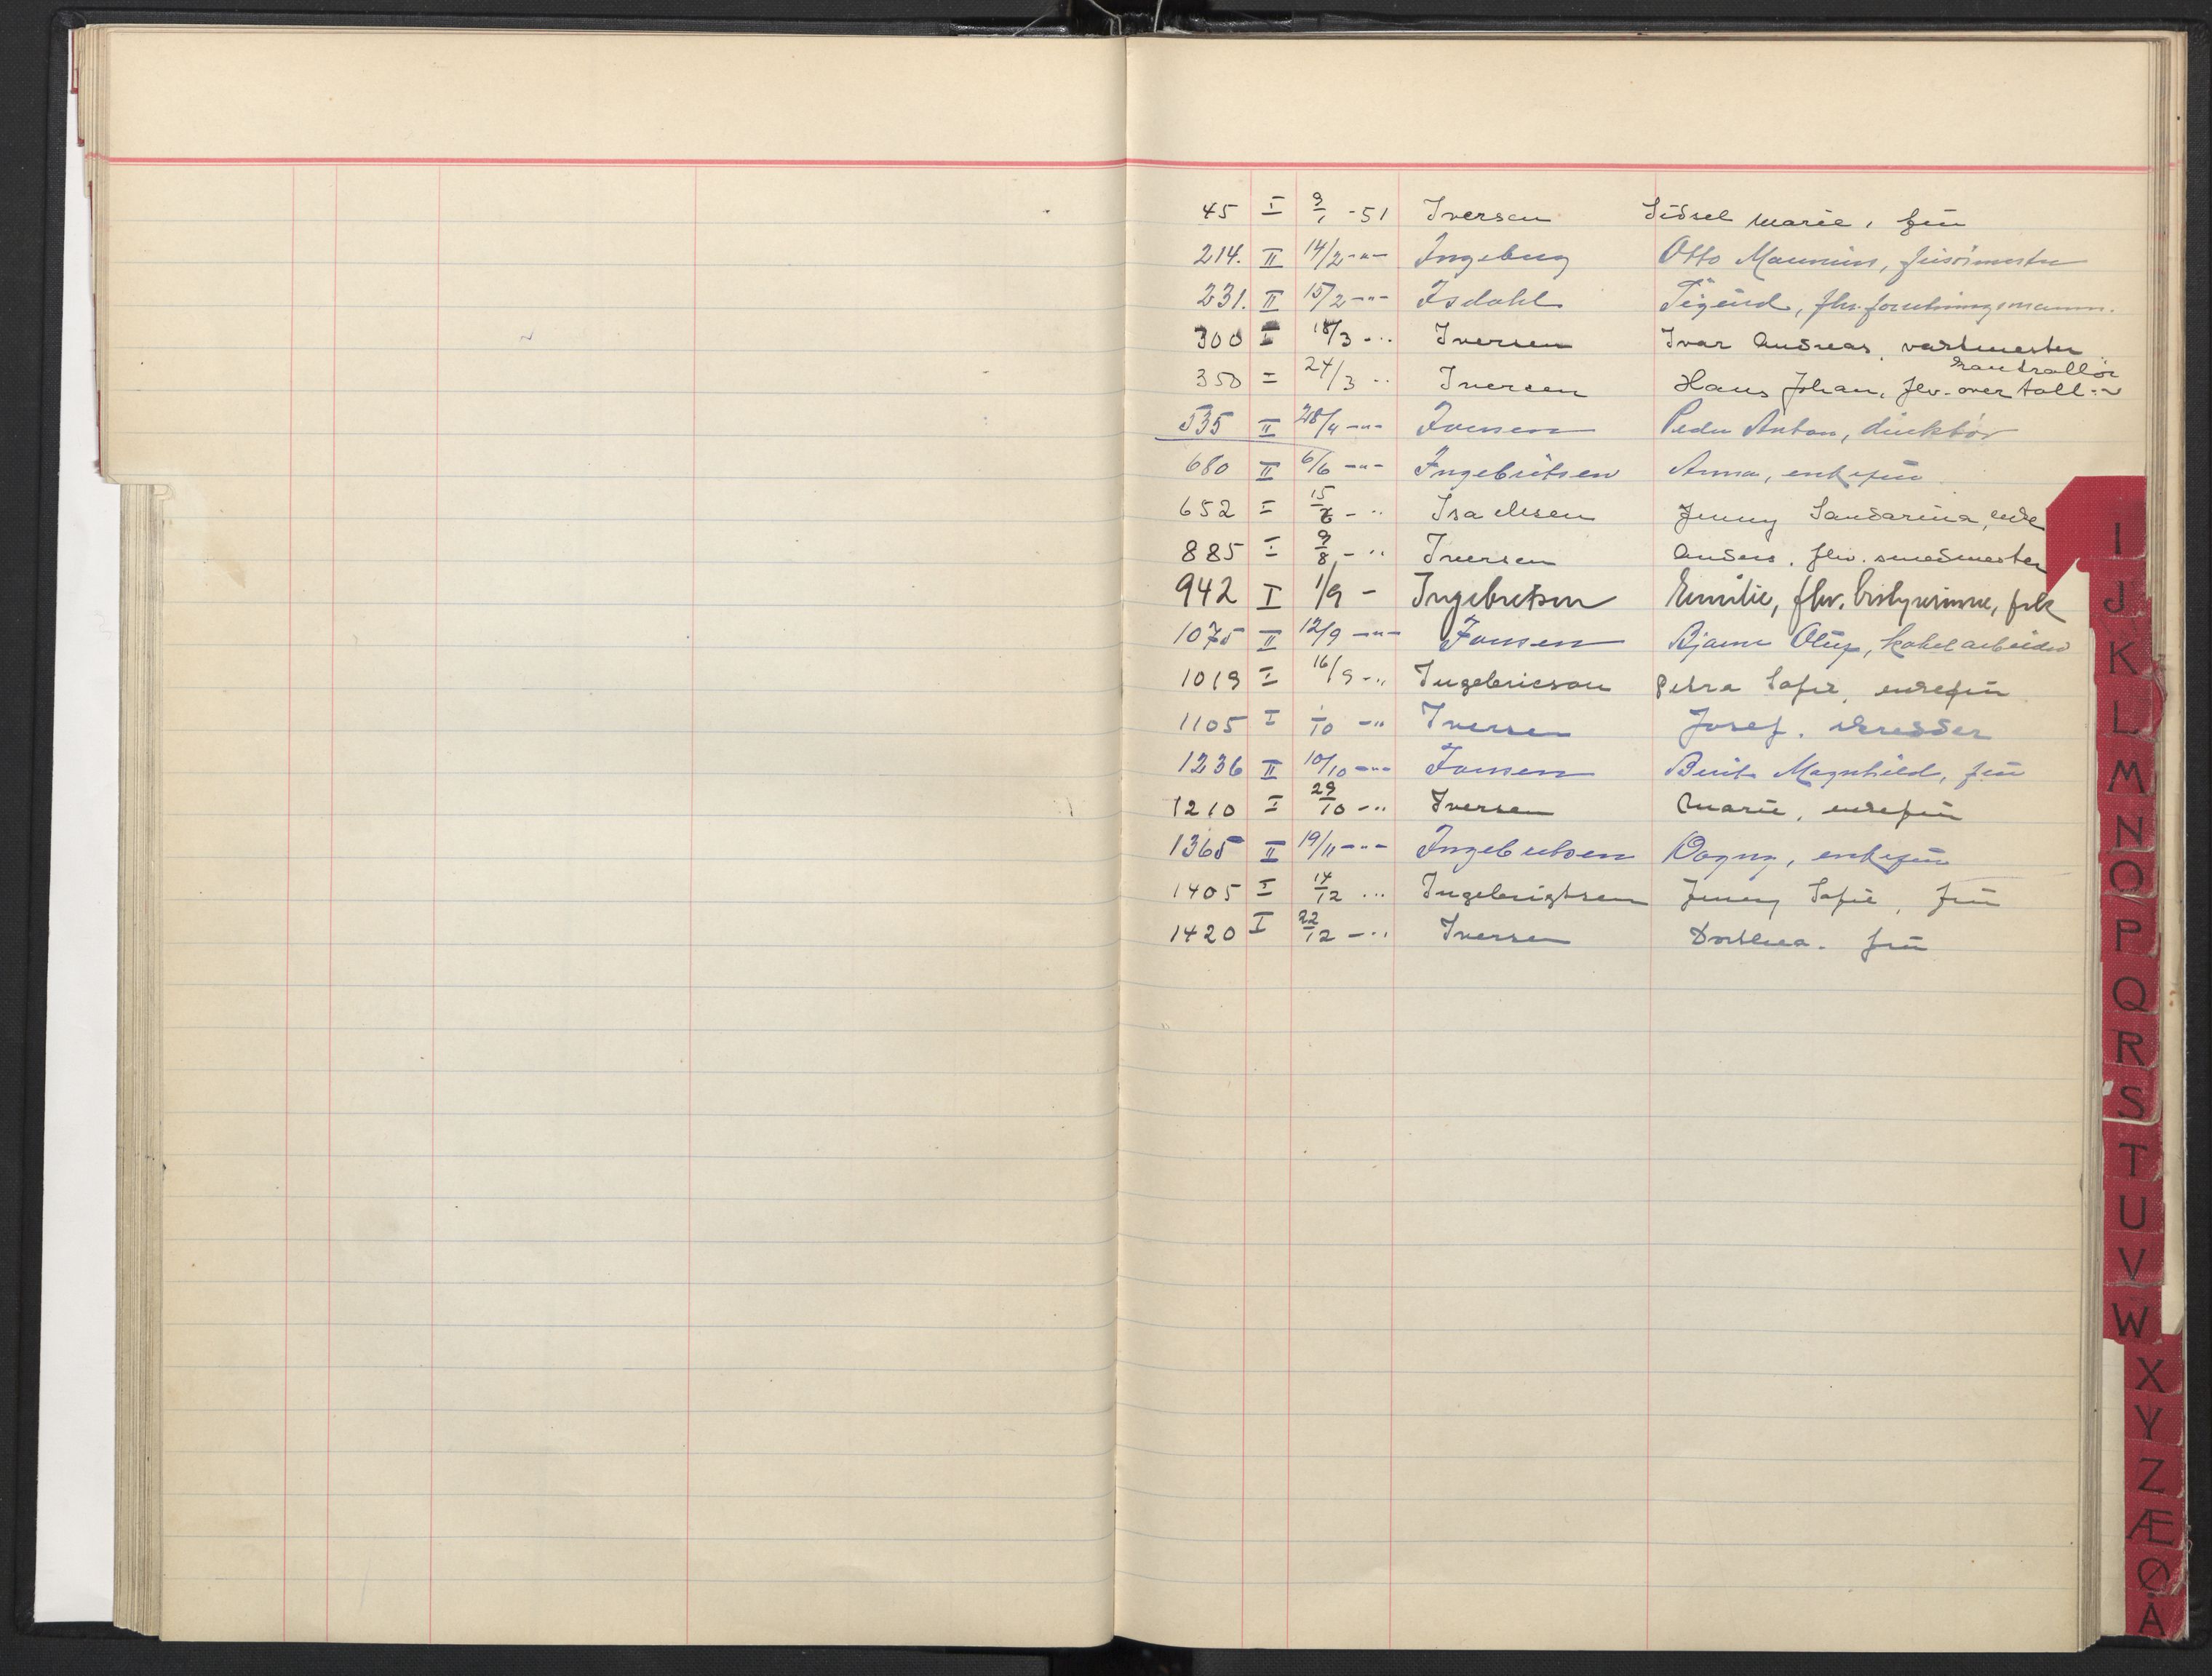 45 I 9/1 -51 Iversen Sidsel Marie, frü
214. II 14/2 -"- Ingeberg Otto Maurius, frisörmester
231. II 15/2 -"- Isdahl Sigürd, fhv. forretningsmann.
300 I 18/3 - " Iversen Ivar Andreas, vaktmester
350 I 24/3 " Iversen Hans Johan, fhv. over toll kontrollör
535 II 28/4 -"- Iversen Peder Anton, direktør
680 II 6/6 -"- Ingebretsen Anna, enkefrü
652 I 15/6 - " Isachsen Jenny Sandarina, enke
885 I 9/8 - " Iversen Anders, fhv. smedmester
942 I 1/9 - Ingebretsen Emilie, fhv. bestyrerinne, frk
1075 II 12/9 -"- Iversen Bjarne Olüf, kabelarbeider
1019 I 16/9 - " Ingebricson Petra Sofie, enkefrü
1105 I 1/10 - " Iversen Josef, skredder
1236 II 10/10 -"- Iversen Berit Magnhild, frü
1210 I 29/10 - " Iversen Marie, enkefrü
1365 II 19/11 -"- Ingebretsen Dagny, enkefrü
1405 I 14/12 " Ingebrigtsen Jenny Sofie, frü
1420 I 22/12 - " Iversen Dorthea. frü
I
J
K
L
M
N
O
P
Q
R
S
T
U
V
W
X
Y
Z
Æ
Ø
Å